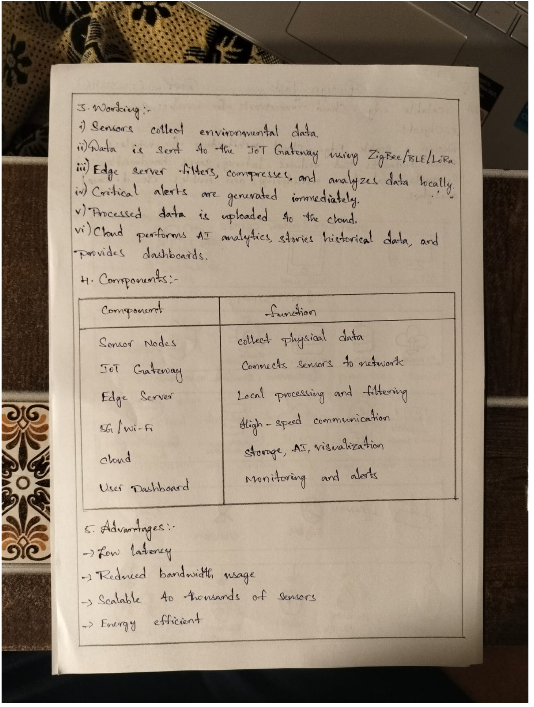 3. Working:-
i) Sensors collect environmental data.
ii) Data is sent to the IoT Gateway using ZigBee/BLE/LoRa
iii) Edge server filters, compresses, and analyzes data locally.
iv) Critical alerts are generated immediately.
v) Processed data is uploaded to the cloud.
vi) Cloud performs AI analytics, stories historical data, and
provides dashboards.
4. Components:-
Component function
Sensor Nodes collect physical data
IoT Gateway Connects sensors to network
Edge Server Local processing and filtering
5G/Wi-Fi High-speed communication
cloud storage, AI, visualization
User Dashboard Monitoring and alerts
5. Advantages:-
→ Low latency
→ Reduced bandwidth usage
→ Scalable to thousands of sensors
→ Energy efficient